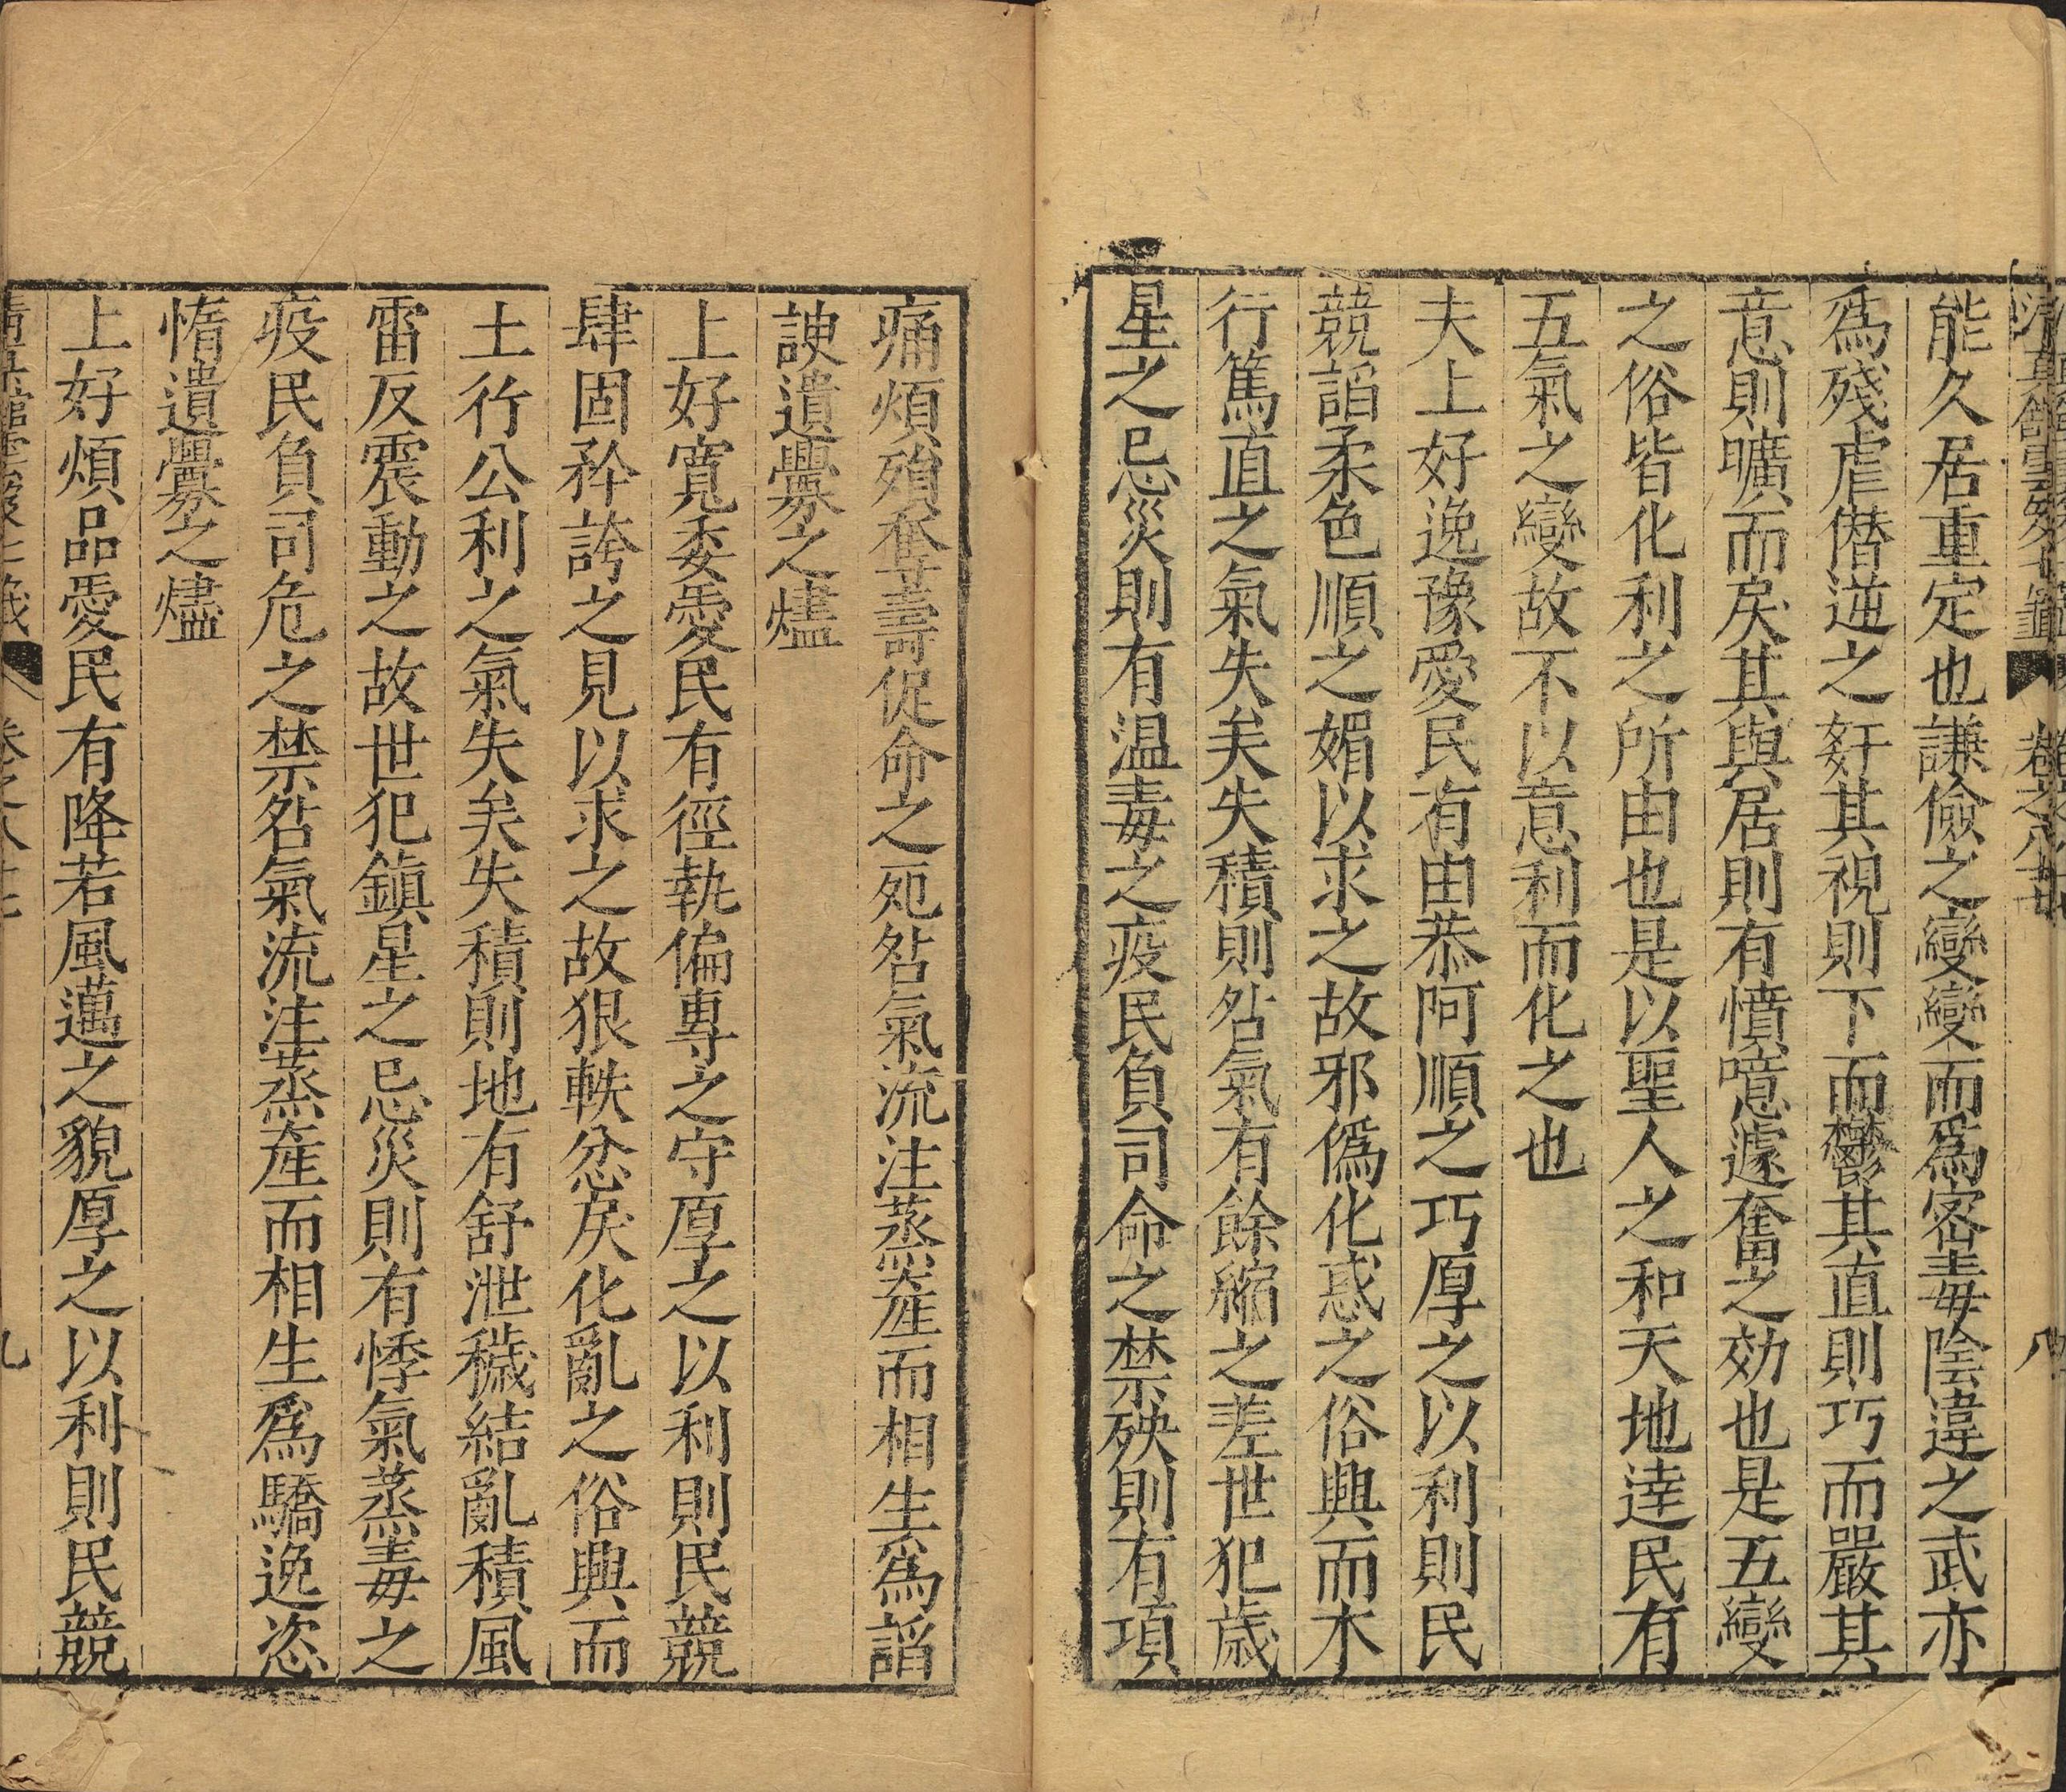 能久居重定也謙儉之變變而爲密毒陰違之武亦
爲殘虐僣逆之奸其視則下而鬱其直則巧而嚴其
意則曠而戾其與居則有憤噫遽奮之効也是五變
之俗皆化利之所由也是以聖人之和天地逹民有
五氣之變故不以意利而化之也
夫上好逸豫愛民有由恭阿順之巧厚之以利則民
競謟柔色順之媚以求之故邪僞化惑之俗興而木
行篤直之氣失矣失積則咎氣有餘縮之差世犯歲
星之忌災則有温毒之疫民負司命之禁殃則有項
痛煩殞奪壽促命之死咎氣流注蒸產而相生爲謟
諛遺釁之燼
上好寬委愛民有徑執偏專之守厚之以利則民競
肆固矜誇之見以求之故狠軼忿戾化亂之俗興而
土行公利之氣失矣失積則地有舒泄穢結亂積風
雷反震動之故世犯鎮星之忌災則有悸氣蒸毒之
疫民負司危之禁咎氣流注蒸產而相生爲驕逸恣
惰遺釁之燼
上好煩品愛民有降若風邁之貌厚之以利則民競